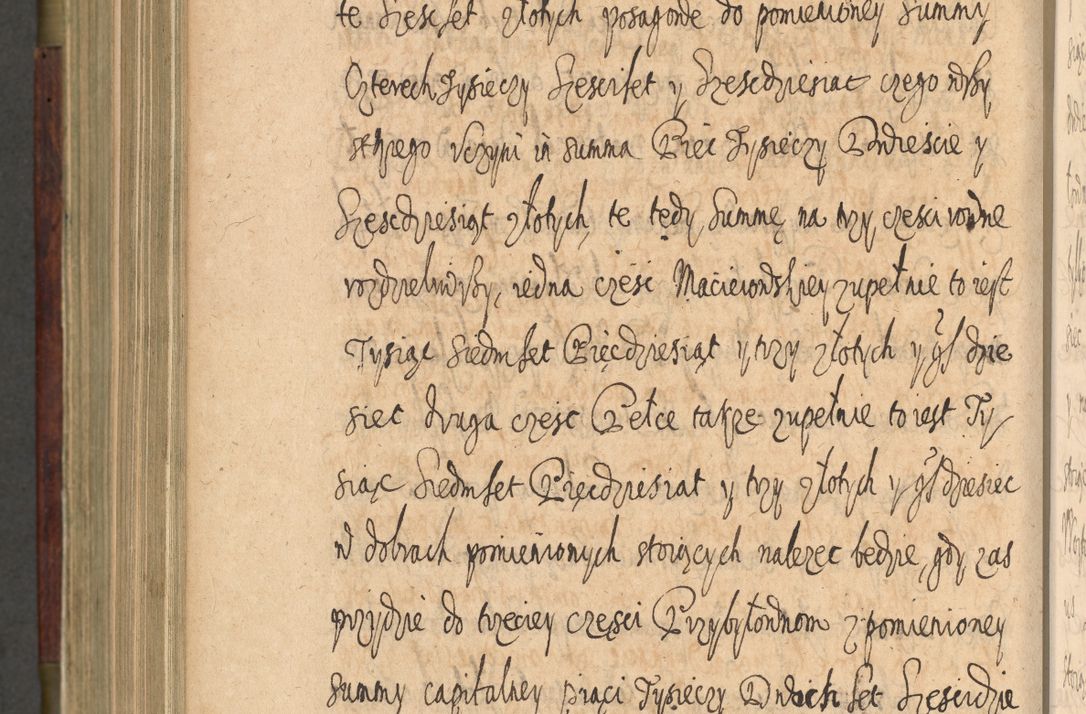 te szescset złotych posagowe do pomienioney summy
Czterech Tysięczy szesciset y szescdziesiąt czego wszy
stkiego vczyni in summa Pięc Tysięczy Dwieście y
szescdziesiąt złotych, te tędy summę na trzy częsci rowne
rozdzeliwszy, iedna częsc Macieiowskiey zupełnie to iest
Tysiąc siedmset Pięcdziesiąt y trzy złotych y gſ dzie
sięc druga częsc Pełce takze zupełnie to iest Ty
siąc siedmset Pięcdziesiat y trzy złotych y gſ dziesięc
w dobrach pomienionych stoiących nalezec będzie, gdy zas
przyidzie do trzeciey częsci Przybyłownom z pomienioney
summy capitalney Tysięczy set szescidzie